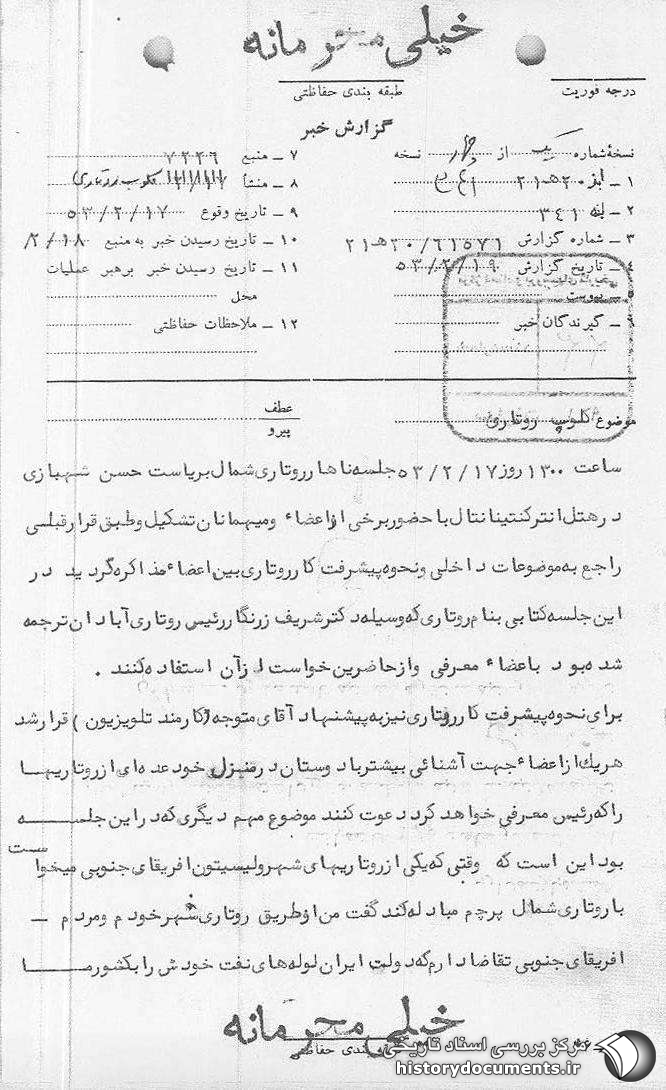 خیلی محرمانه
درجه فوریت
طبقه بندی حفاظتی
گزارش خبر
نسخهٔ شماره یک از چهار نسخه
۱ ـ به ۲۰ ه‍ ۲۱
۲ ـ از ۳۴۱
۳ ـ شماره گزارش ۲۱ ه‍ ۲۰/۶۱۵۷۱
۴ ـ تاریخ گزارش ۵۳/۲/۱۹
۵ ـ پیوست
۶ ـ گیرندگان خبر
۷ ـ منبع ۷۲۳۶
۸ ـ منشأ
۹ ـ تاریخ وقوع ۵۳/۲/۱۷
۱۰ ـ تاریخ رسیدن خبر به منبع ۲/۱۸/
۱۱ ـ تاریخ رسیدن خبر برهبر عملیات
محل
۱۲ ـ ملاحظات حفاظتی
موضوع کلوپ روتاری
عطف
پیرو
ساعت ۱۳۰۰ روز ۵۳/۲/۱۷ جلسه ناهار روتاری شمال بریاست حسن شهبازی
در هتل انترکنتینانتال با حضور برخی از اعضاء و میهمانان تشکیل و طبق قرار قبلی
راجع به موضوعات داخلی و نحوه پیشرفت کار روتاری بین اعضاء مذاکره گردید در
این جلسه کتابی بنام روتاری که وسیله دکتر شریف زرنگار رئیس روتاری آبادان ترجمه
شده بود باعضاء معرفی و از حاضرین خواست از آن استفاده کنند .
برای نحوه پیشرفت کار روتاری نیز به پیشنهاد آقای متوجه (کارمند تلویزیون) قرار شد
هریک از اعضاء جهت آشنائی بیشتر با دوستان در منزل خود عده ای از روتاریها
را که رئیس معرفی خواهد کرد دعوت کنند موضوع مهم دیگری که در این جلسه
بود این است که وقتی که یکی از روتاریهای شهر ولیسیتون افریقای جنوبی میخواست
با روتاری شمال پرچم مبادله کند گفت من از طریق روتاری شهر خودم و مردم ـ
افریقای جنوبی تقاضا دارم که دولت ایران لوله های نفت خودش را بکشور ما
خیلی محرمانه
طبقه بندی حفاظتی
مرکز بررسی اسناد تاریخی
historydocuments.ir